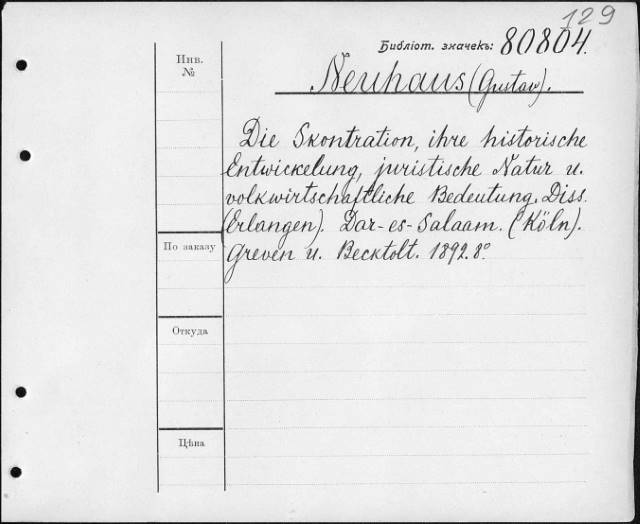 129
Библіот. значекъ: 80804.
Инв.
№
Neuhaus (Gustav).
Die Skontration, ihre historische
Entwickelung, juristische Natur u.
volkwirtschaftliche Bedeutung. Diss.
(Erlangen). Dar-es-Salaam. (Köln).
Greven u. Becktolt. 1892. 8°
По заказу
Откуда
Цѣна